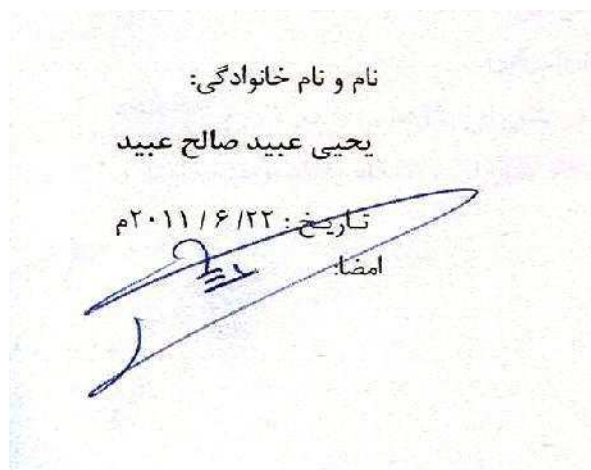 نام و نام خانوادگی:
یحیی عبید صالح عبید
تاریخ: ۲۲/ ۶ / ۲۰۱۱م
امضا: